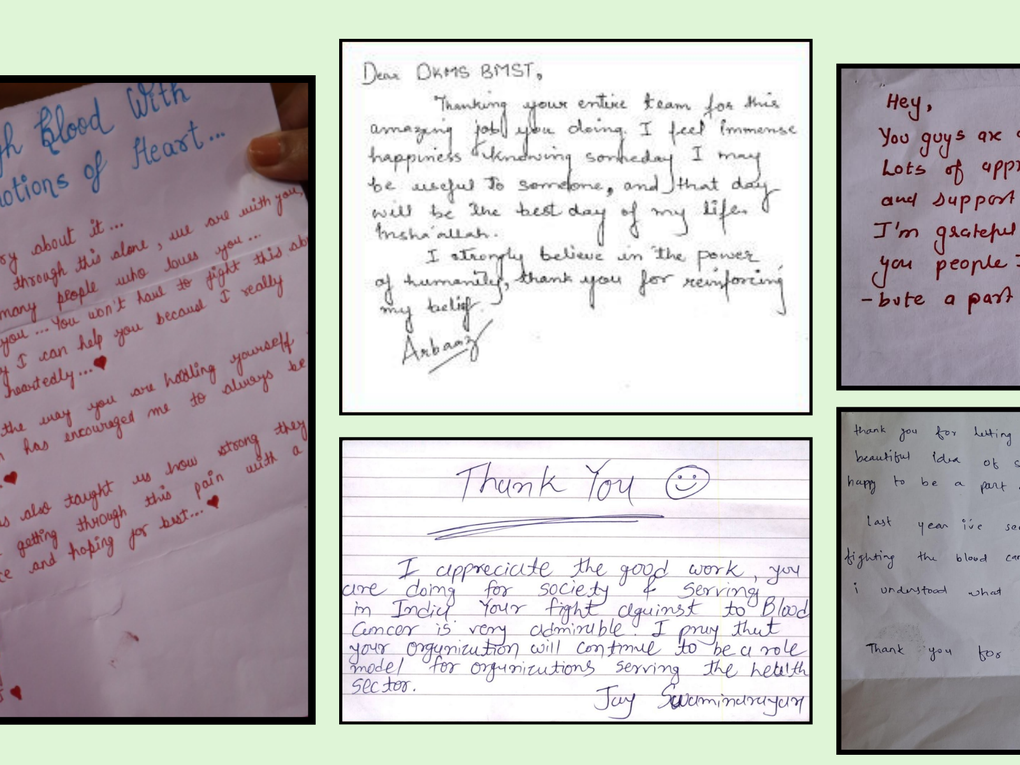 gh Blood With
otions of Heart...
ry about it...
through this alone, we are with you,
many people who loves you...
you... You won't have to fight this alo
y I can help you because I really
heartedly...
the way you are holding yourself
n has encouraged me to always be
s also taught us how strong they
getting through this pain with a
ce and hoping for best...
Dear DKMS BMST,
Thanking your entire team for this
amazing job you doing. I feel immense
happiness knowing someday I may
be useful to someone, and that day
will be the best day of my life.
Insha'allah.
I strongly believe in the power
of humanity, thank you for reinforcing
my belief.
Arbaaz
Thank You ☺
I appreciate the good work, you
are doing for society & serving
in India Your fight against to Blood
Cancer is very admirable. I pray that
your organization will continue to be a role
model for organizations serving the health
sector.
Jay Swaminarayan
Hey,
You guys are a
Lots of appr
and support
I'm grateful
you people I
-bute a part
thank you for letting
beautiful idea of s
happy to be a part
Last year i've se
fighting the blood can
i understood what
Thank you for